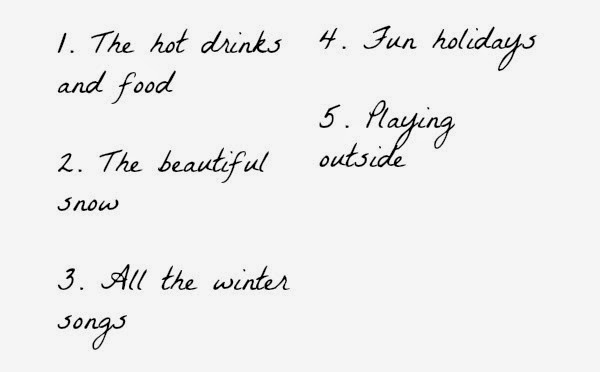 1. The hot drinks
and food
2. The beautiful
snow
3. All the winter
songs
4. Fun holidays
5. Playing
outside